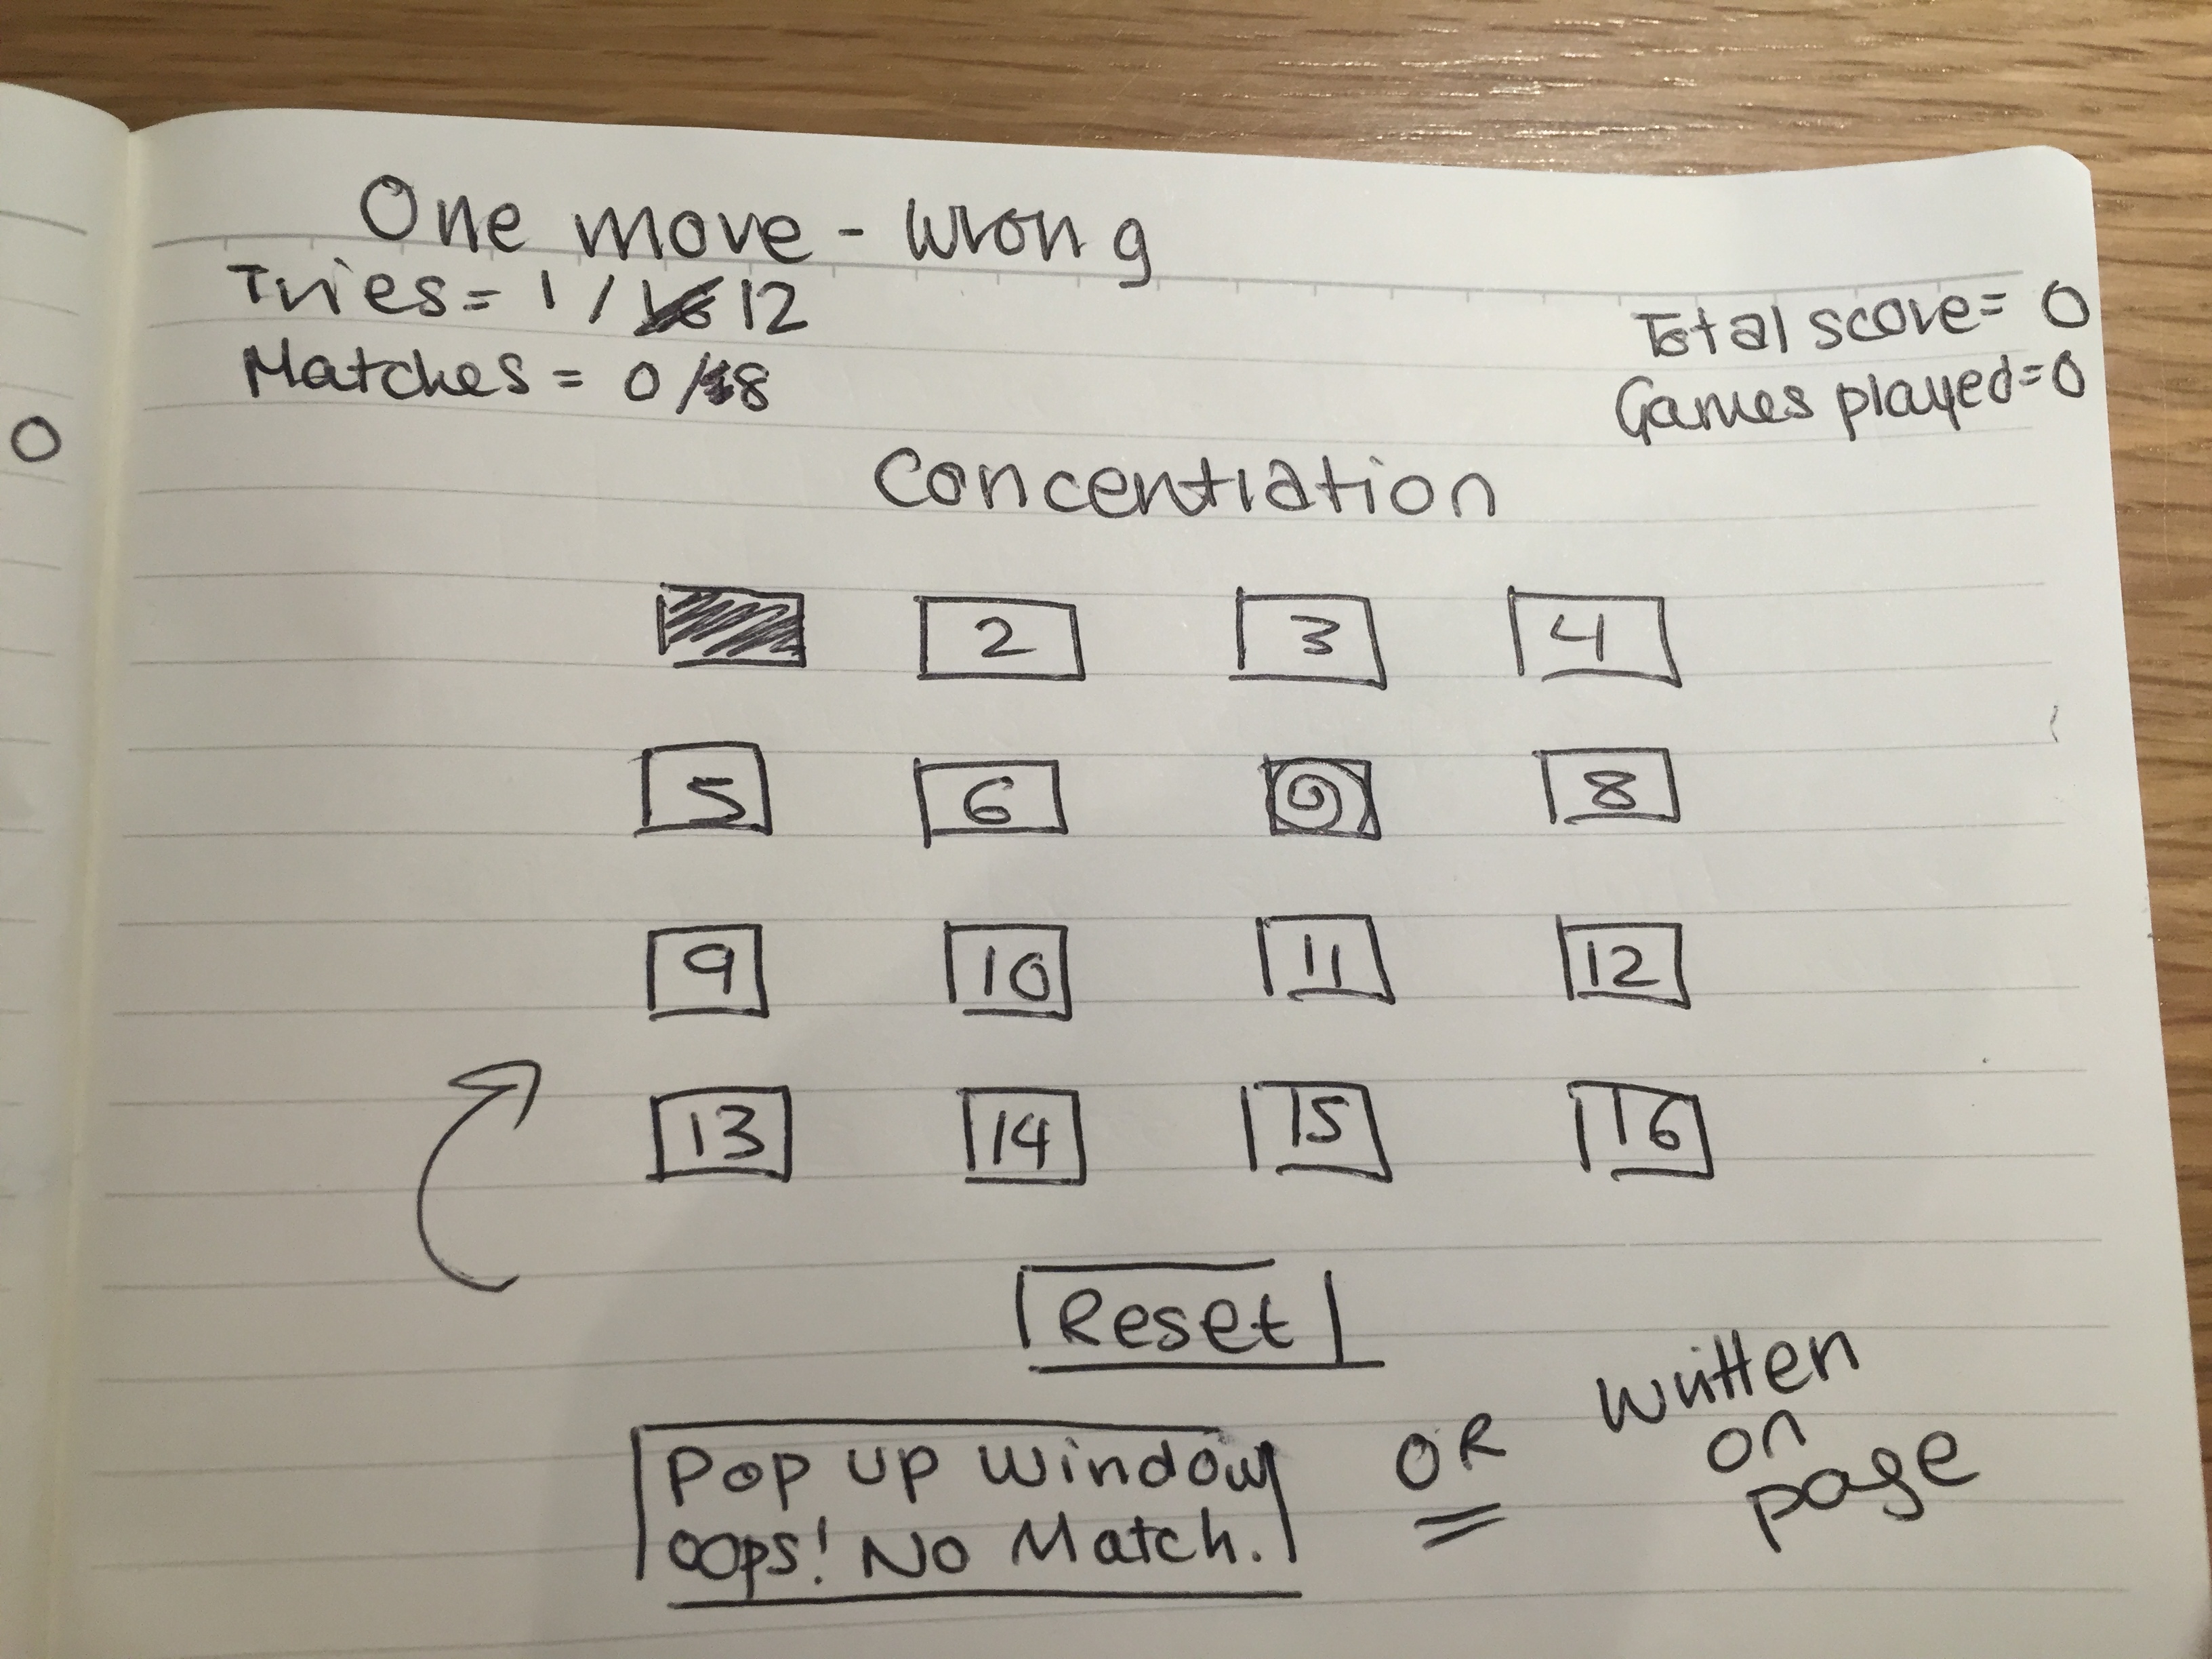 One move - wrong
Tries = 1 / 12
Matches = 0/8
Total score = 0
Games played = 0
0
Concentration
2 3 4
5 6 8
9 10 11 12
13 14 15 16
Reset
Pop up window
oops! No Match.
OR
written
on
page